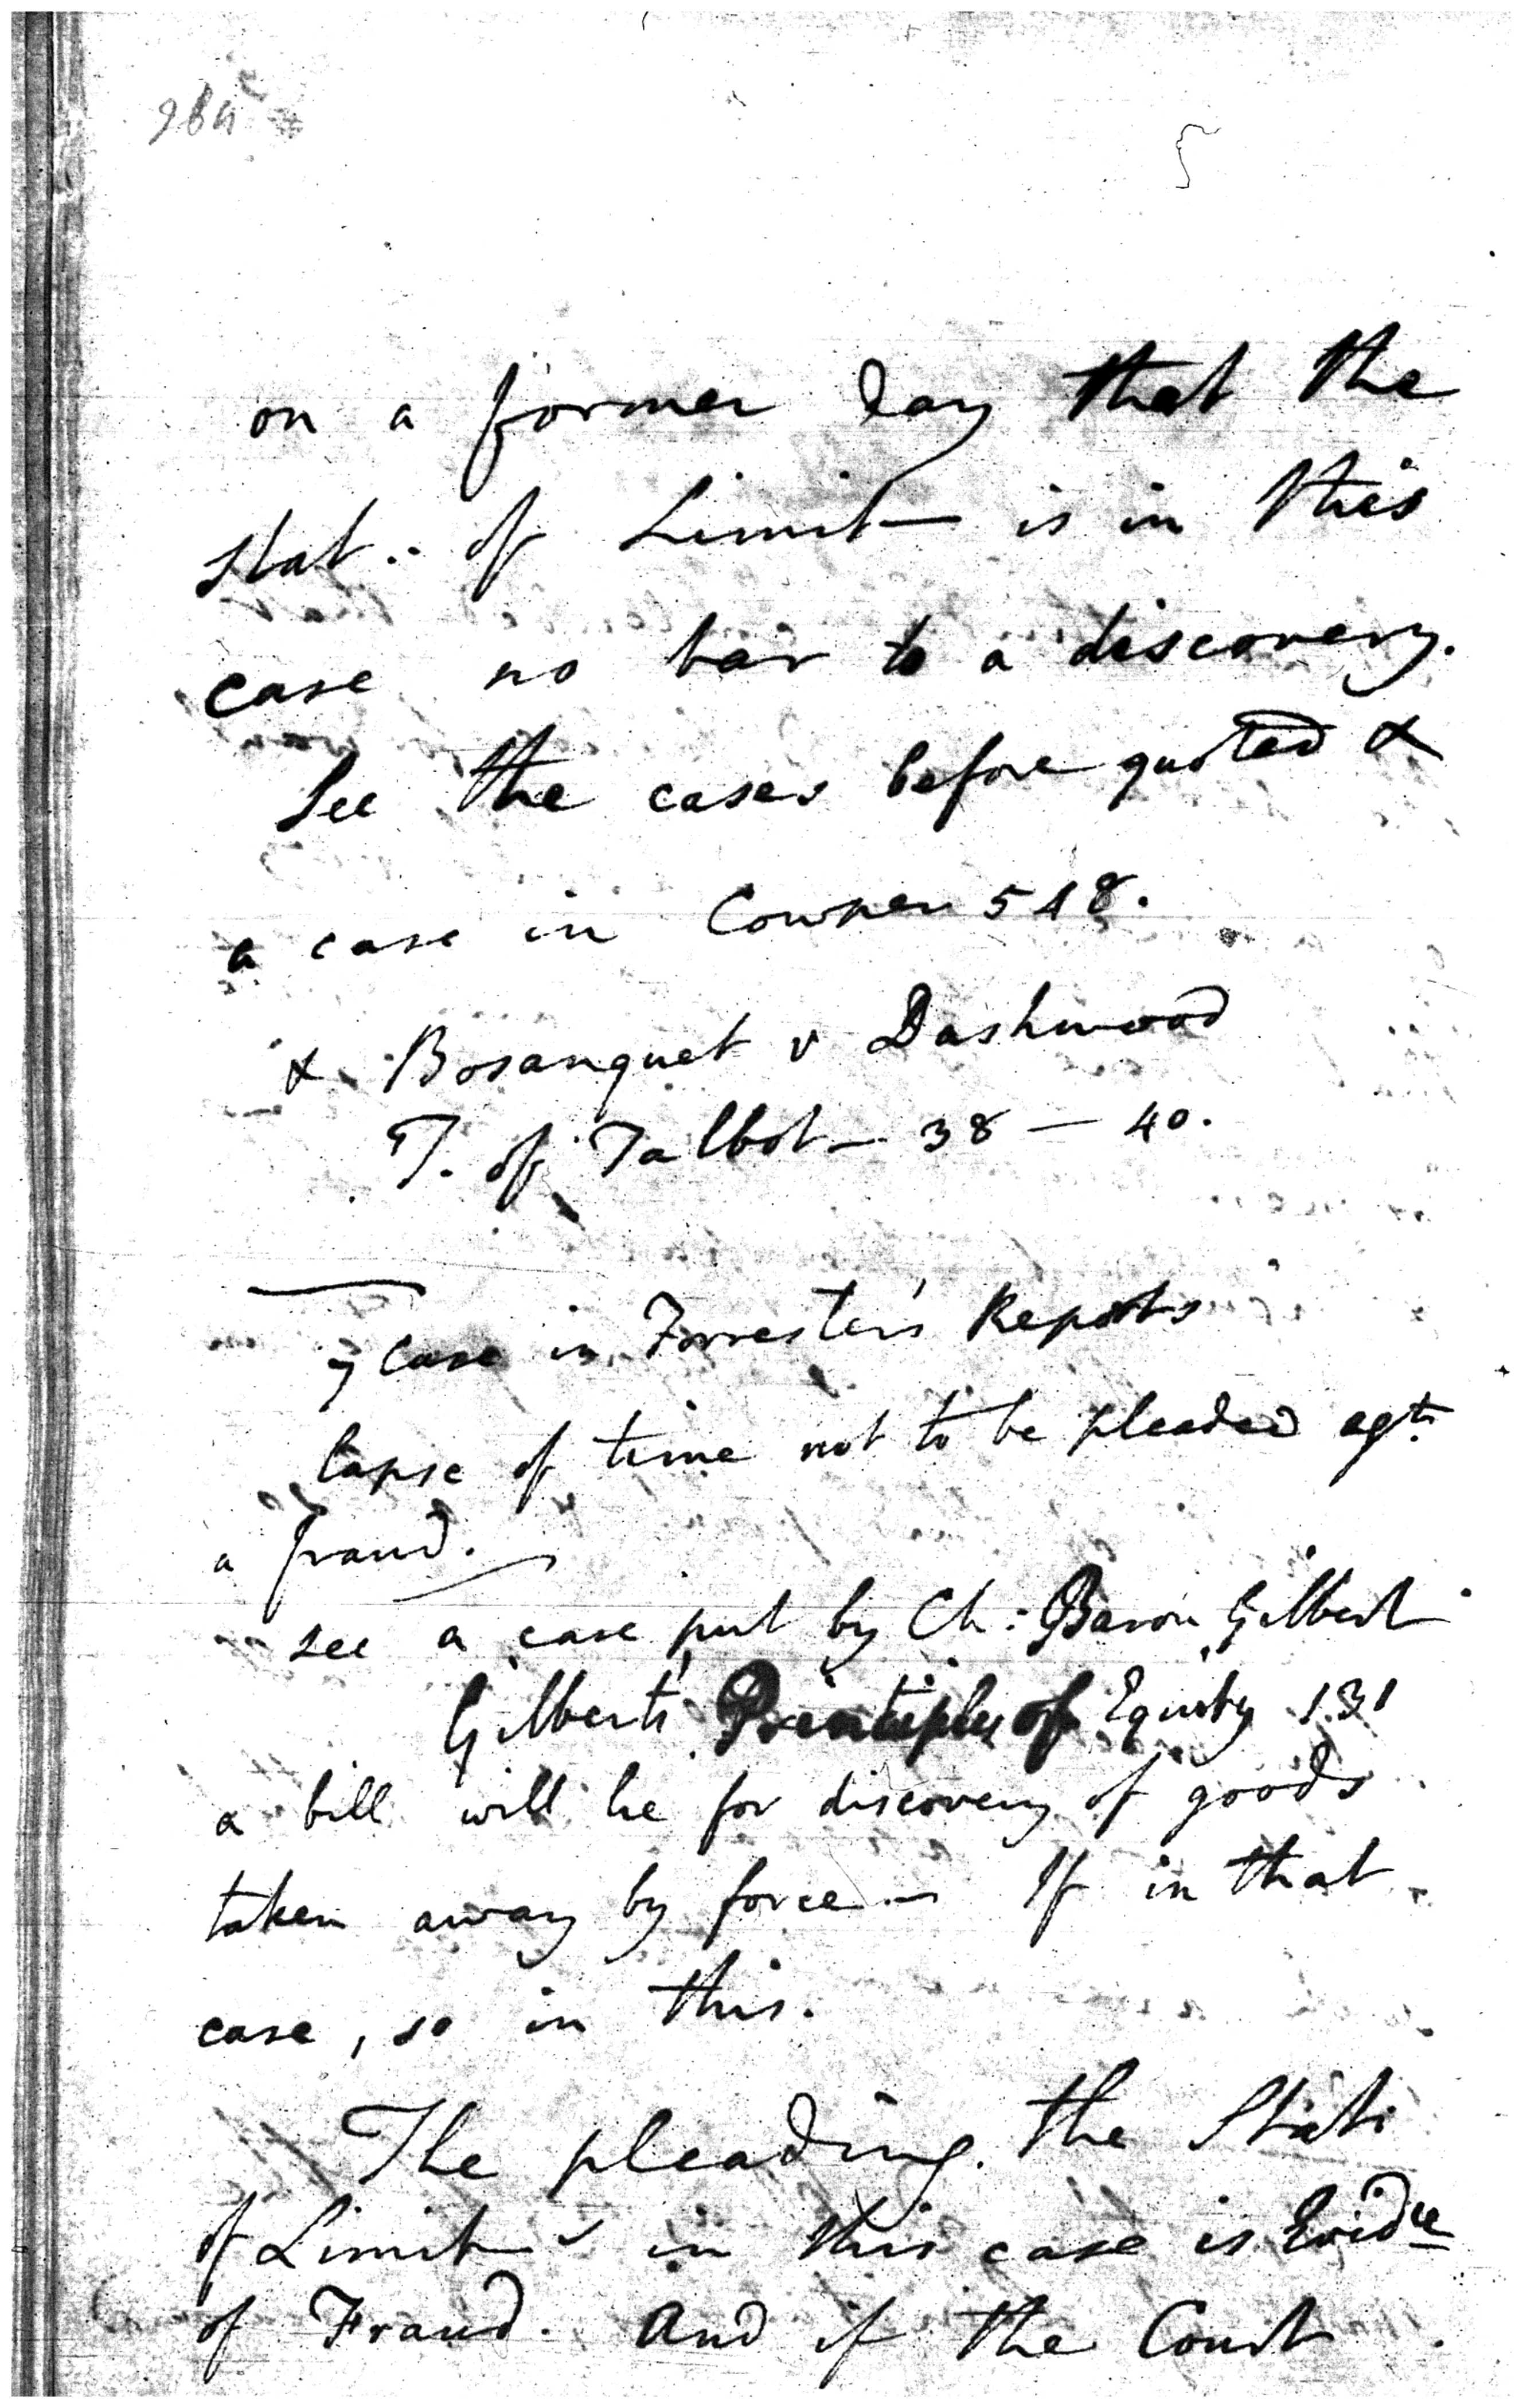 on a former day that the
stat. of Limit— is in this
case no bar to a discovery.
See the cases before quoted &
a case in Cowper 548.
& Bosanquet v Dashwood
T. of Talbot— 38 — 40.
Case in Forrester's Reports
lapse of time not to be pleaded agt.
a fraud.
see a case put by Ch: Baron Gilbert
Gilberts Principles of Equity 131
a bill will lie for discovery of goods
taken away by force— If in that
case, so in this.
The pleading the Stat:
of Limit— in this case is Evidce
of Fraud. And if the Court